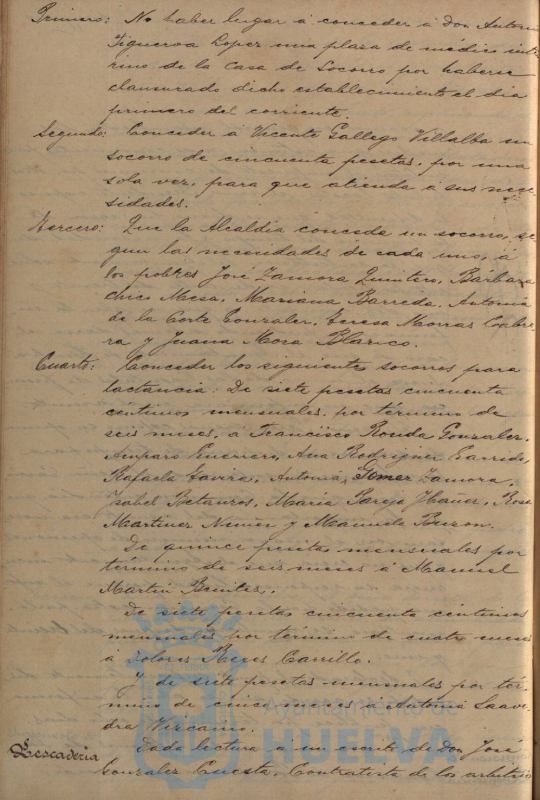 Primero: No haber lugar á conceder á Don Antonio
Figueroa Lopez una plaza de médico inte-
rino de la Casa de Socorro por haberse
clausurado dicho establecimiento el dia
primero del corriente.
Segundo: Conceder á Vicente Gallego Villalba un
socorro de cincuenta pesetas, por una
sola vez, para que atienda á sus nece-
sidades.
Tercero: Que la Alcaldia conceda un socorro, se-
gun las necesidades de cada uno, á
los pobres José Zamora Quintero, Bárbara
Chico Mesa, Mariana Barreda, Antonia
de la Corte Gonzalez, Teresa Morras Cabre-
ra y Juana Mora Blanco.
Cuarto: Conceder los siguientes socorros para
lactancia: De siete pesetas cincuenta
centimos mensuales, por término de
seis meses, á Francisco Ronda Gonzalez,
Amparo Guerrero, Ana Rodriguez Garrido,
Rafaela Gavira, Antonia Gomez Zamora,
Isabel Betanzos, Maria Parejo Ibañez, Rosa
Martinez Nuñez y Manuela Buzon.
De quince pesetas mensuales por
término de seis meses á Manuel
Martin Benitez.
De siete pesetas cincuenta céntimos
mensuales por término de cuatro meses
á Dolores Reyes Carrillo.
Y de siete pesetas mensuales por tér-
mino de cinco meses á Antonia Saave-
dra Vizcaino.
Pescaderia
Dada lectura á un escrito de Don José
Gonzalez Cuesta, Contratista de los arbitrios
Ayuntamiento de
HUELVA